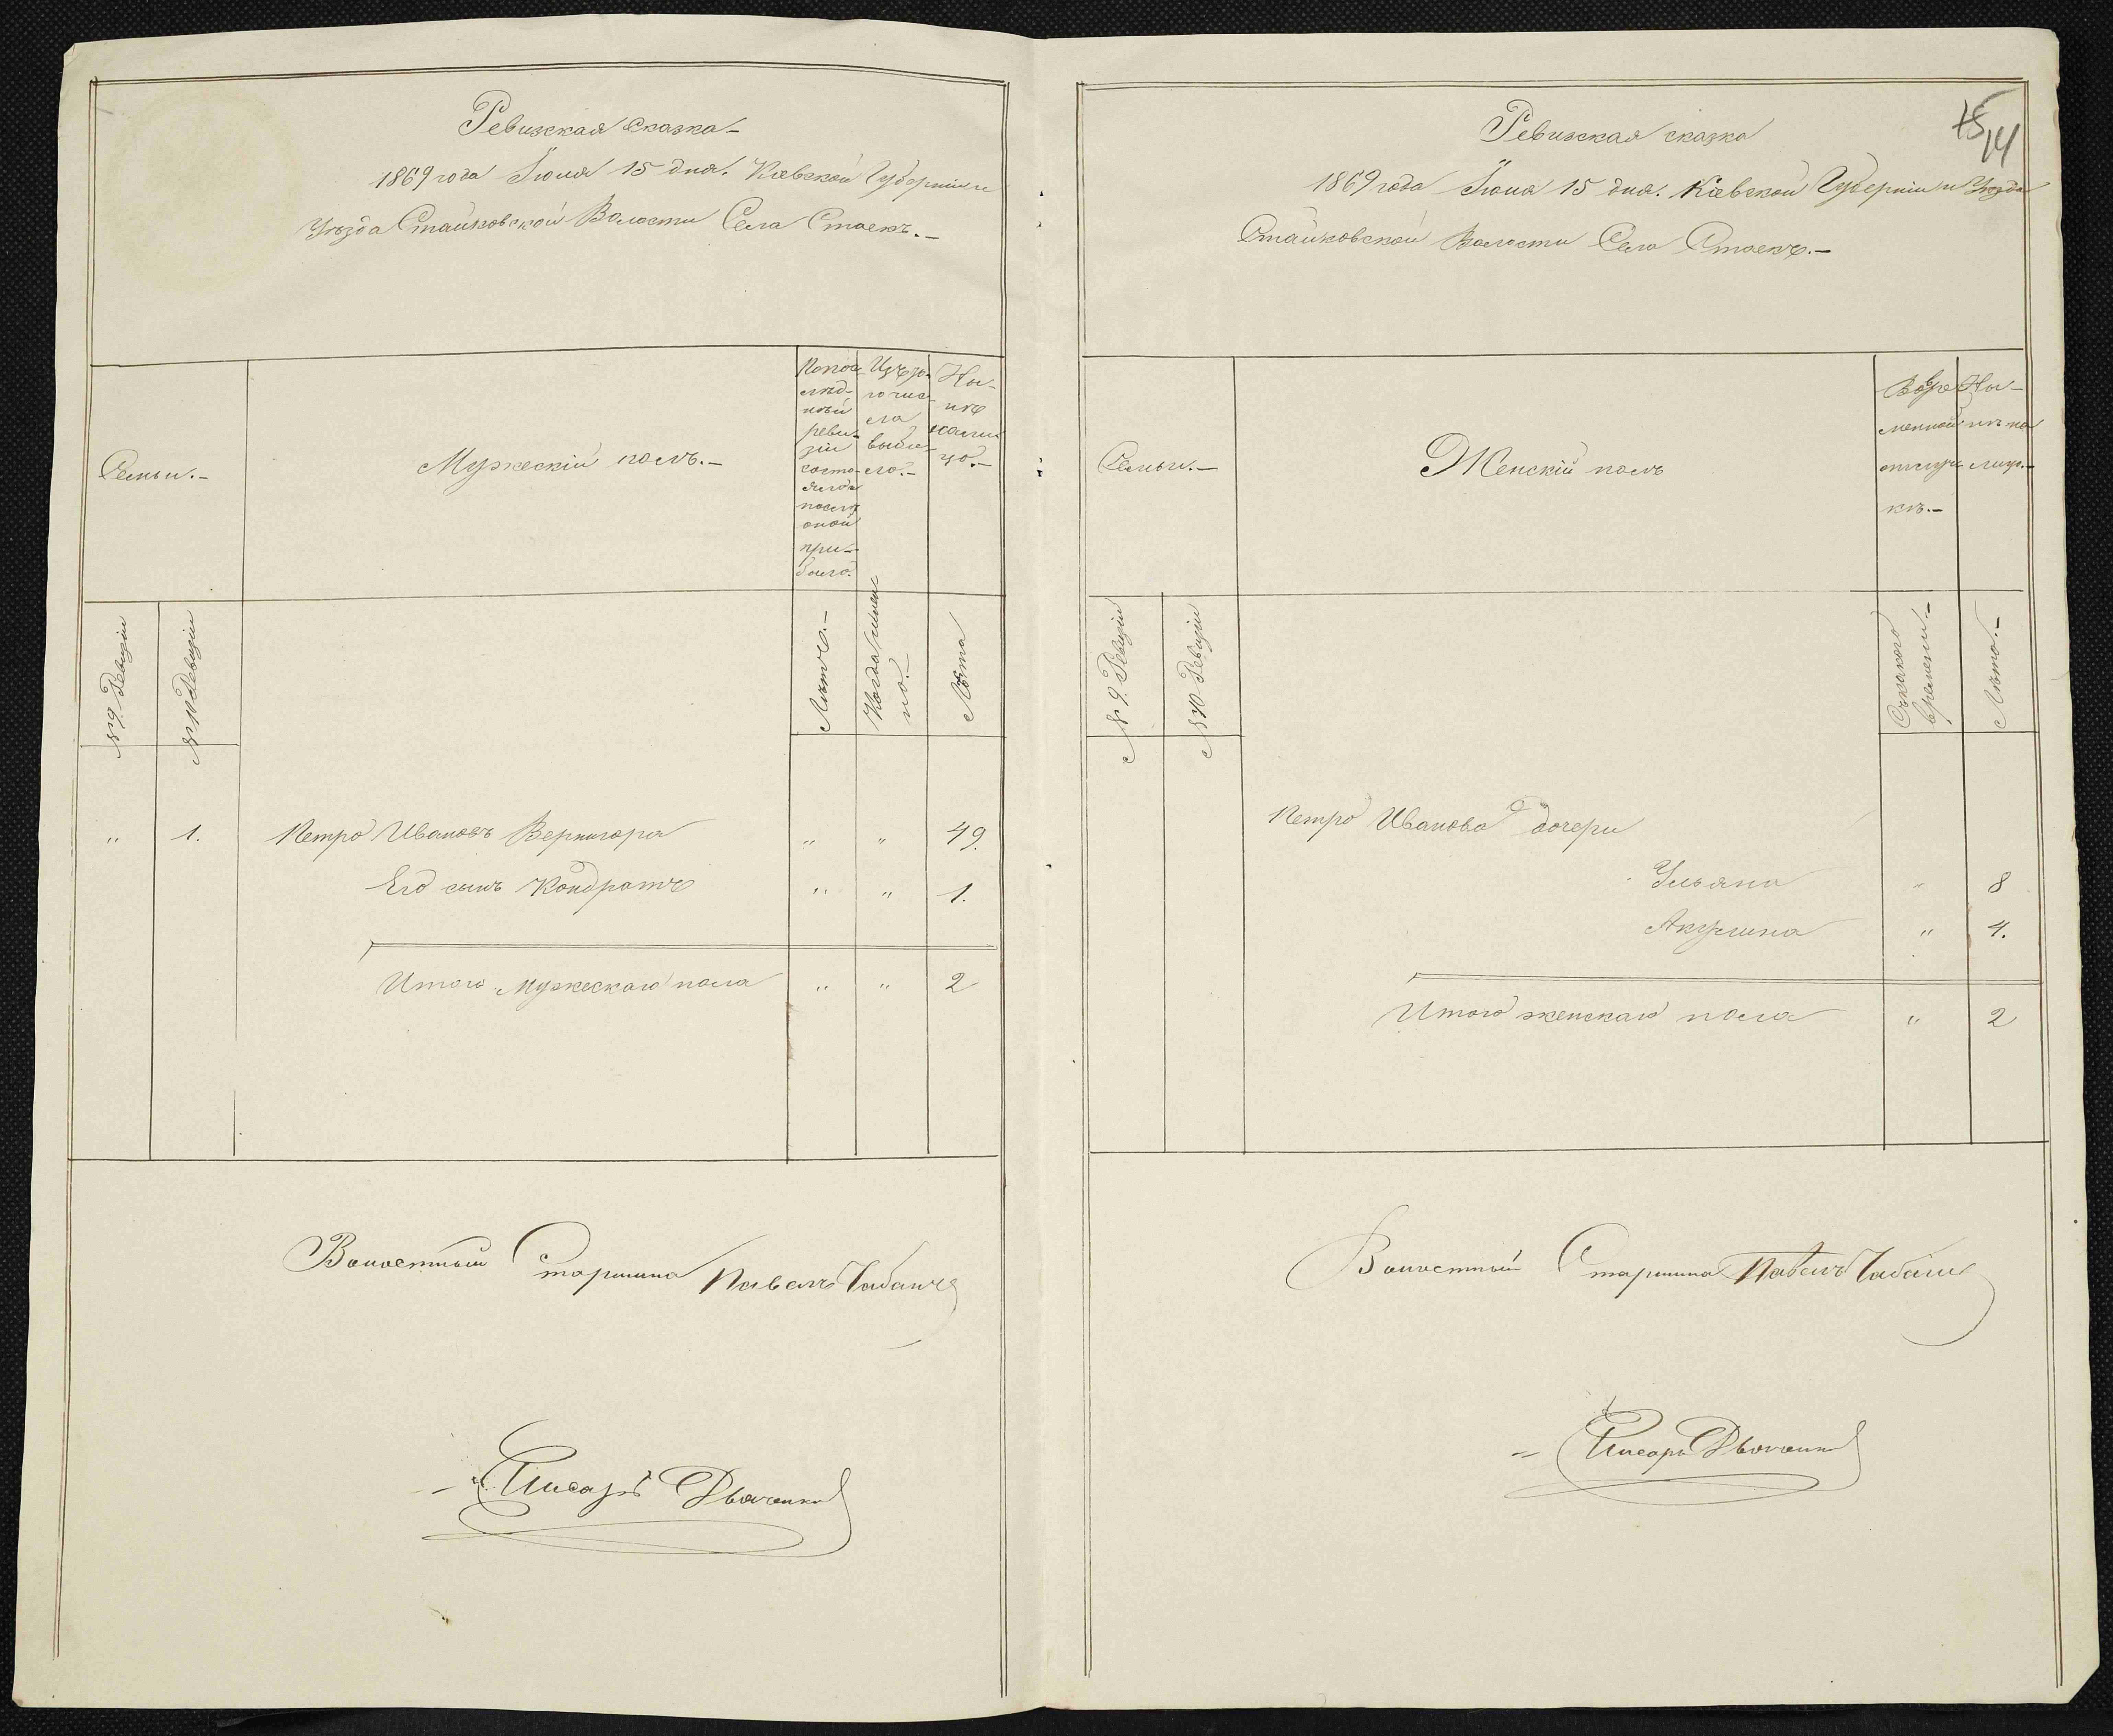 Ревизская сказка –
1869 года Іюня 15 дня. Кіевской Губерніи и
Уѣзда Стайковской Волости Села Стаекъ. –
Семьи. –
Мужескій полъ. –
По пос-
лѣд-
ней
реви-
зіи
состо-
яло и
послѣ
оной
при-
было.
Изъ то-
го чис-
ла
выбы-
ло. –
Ны-
нѣ
на ли-
цо. –
№ 9. Ревизіи
№ 10 Ревизіи
Лѣтъ. –
Когда имен
но. –
Лѣта
„ 1. Петро Ивановъ Вернигора „ „ 49.
Его сынъ Кондратъ „ „ 1.
Итого мужескаго пола „ „ 2
Волостный Старшина Павелъ Чабанъ
Писарь Дьяченко
15 14
Ревизская сказка
1869 года Іюня 15 дня. Кіевской Губерніи и Уѣзда
Стайковской Волости Села Стаекъ. –
Семьи. –
Женскій полъ
Во вре
менной
отлуч-
кѣ. –
Ны-
нѣ на
лицо. –
№ 9. Ревизіи
№ 10 Ревизіи
Съ какого
времени –
Лѣта. –
Петро Иванова дочери
Ульяна „ 8
Акулина „ 4.
Итого женскаго пола „ 2
Волостный Старшина Павелъ Чабанъ
Писарь Дьяченко